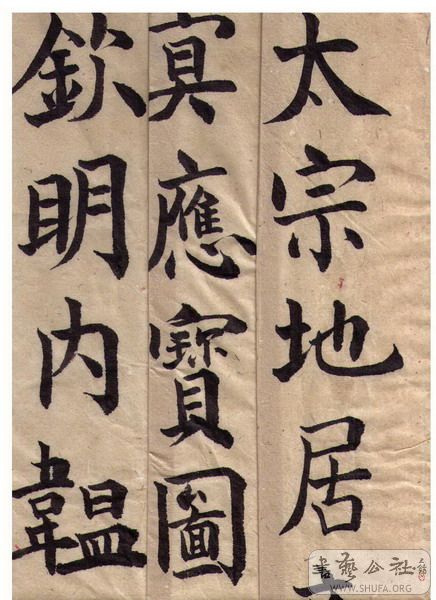 太宗地居
冥應寶圖
欽明内韞
書藝公社
WWW.SHUFA.ORG